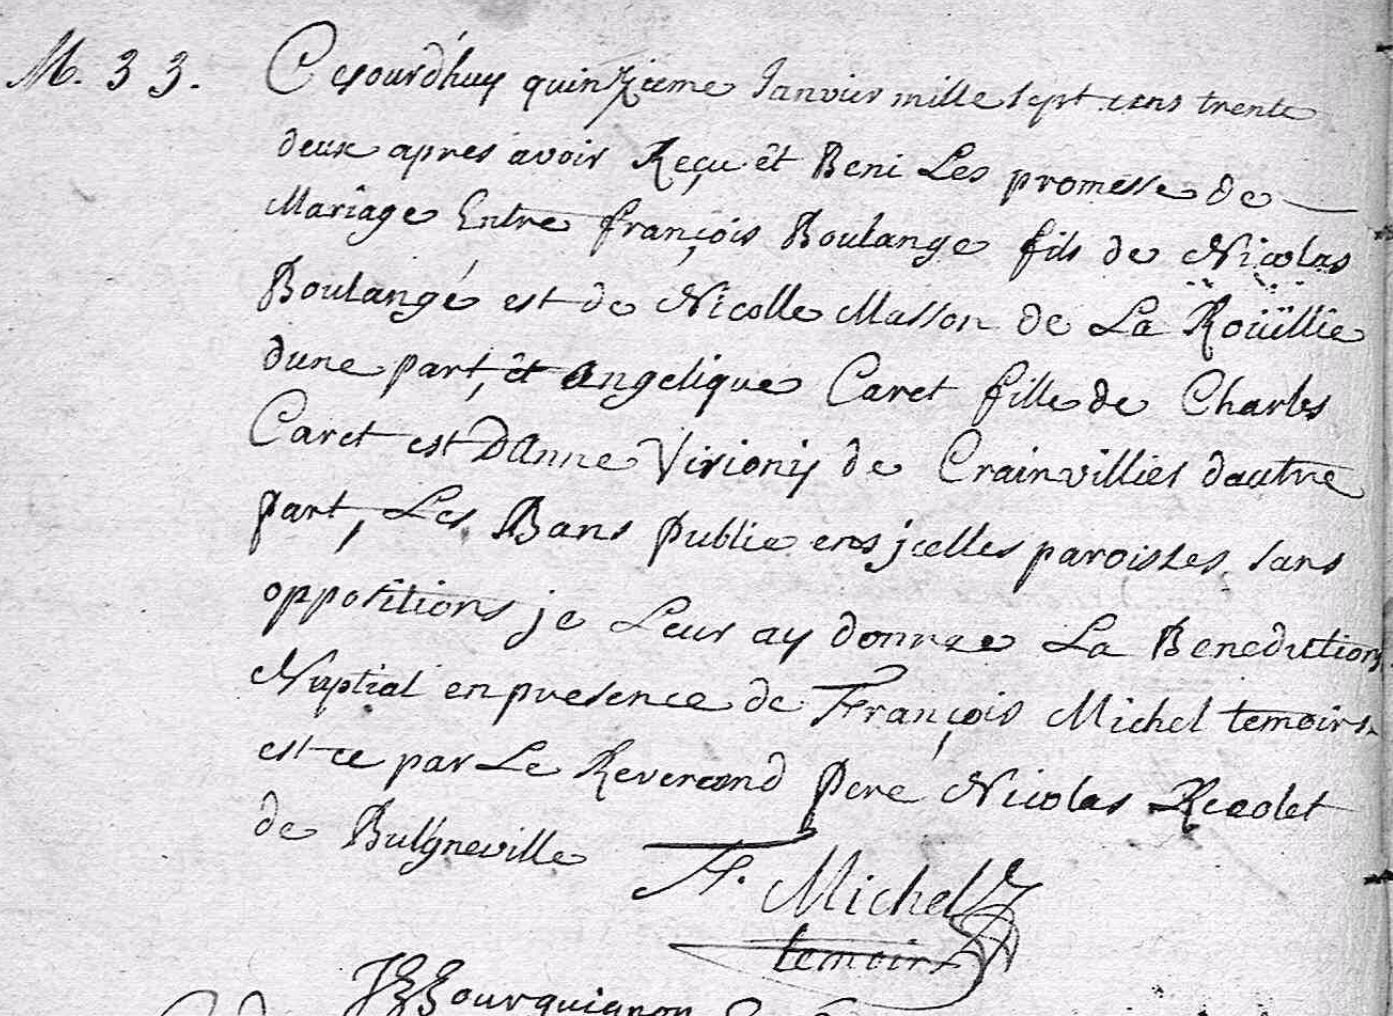 M. 33. Cejourd'huy quinzieme Janvier mille sept cens trente
deux apres avoir Reçu êt Beni Les promesse de
Mariage Entre françois Boulange fils de Nicolas
Boulangé est de Nicolle Masson de La Roüillie
dune part, êt angelique Caret fille de Charles
Caret est D'Anne Virionij de Crainvillies dautre
part, Les Bans publie ens jcelles paroisses sans
oppositions je Leur ay donnee La Benediction
Nuptial en presence de François Michel temoins
est ce par Le Reverend Pere Nicolas Recolet
de Bulgneville
F. Michel
temoin
Bourguignon